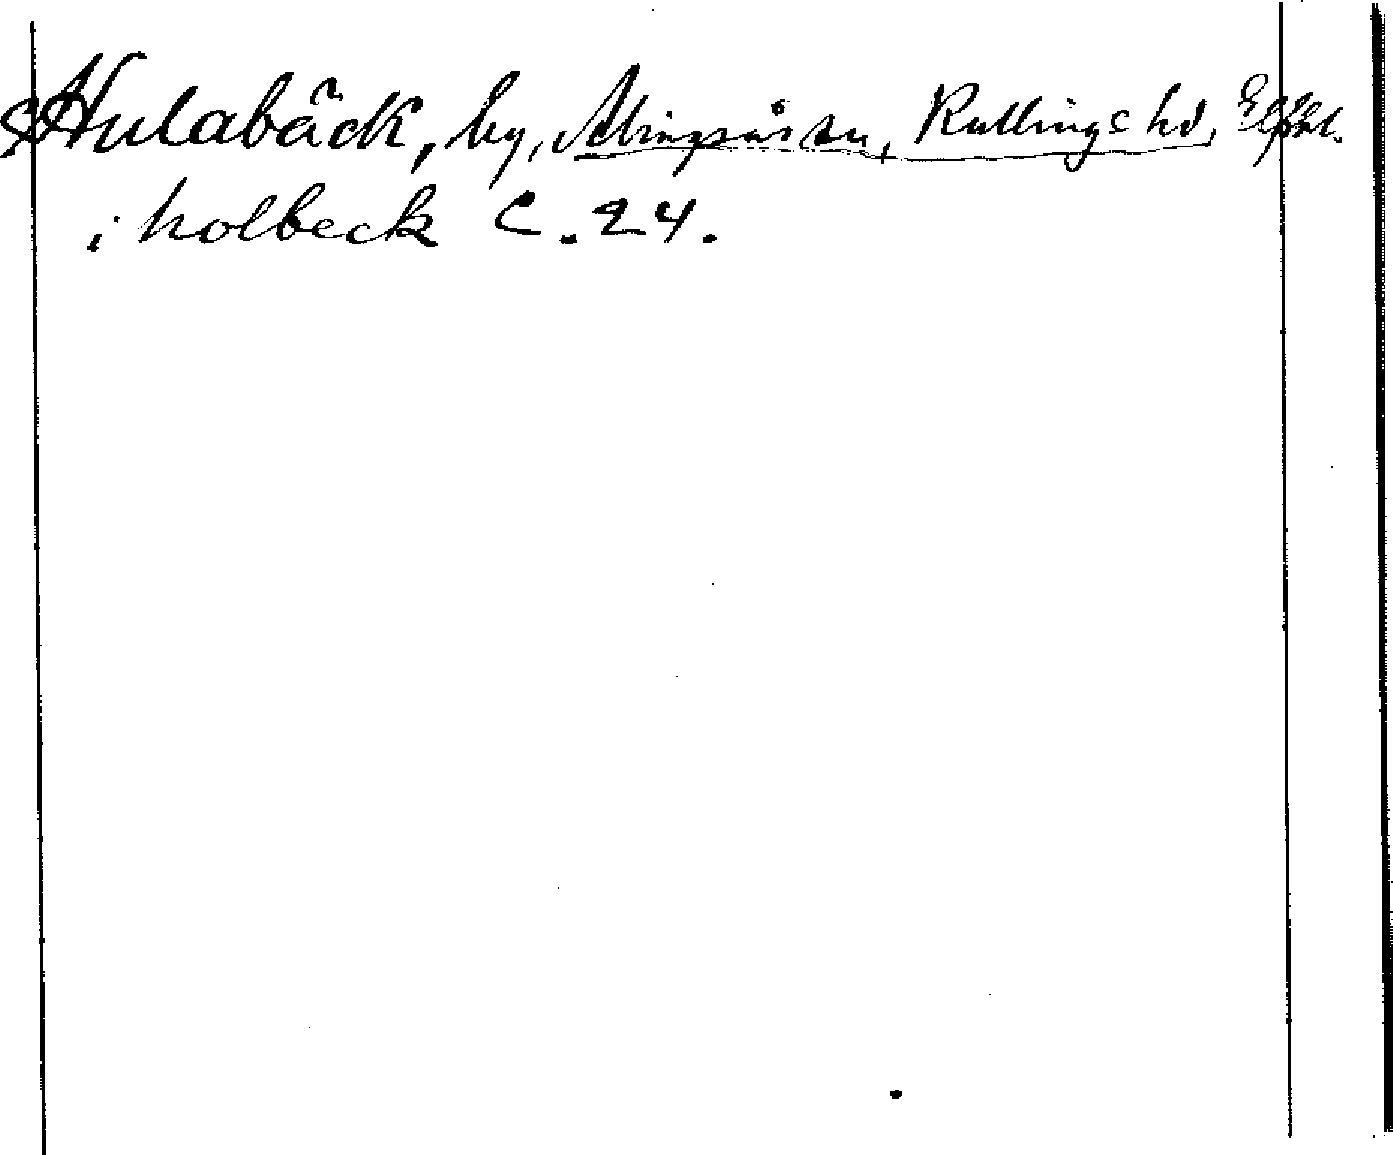 Hulabäck, by, Alingsås sn, Kullings hd, Elfsbl.
i holbeck C. 24.